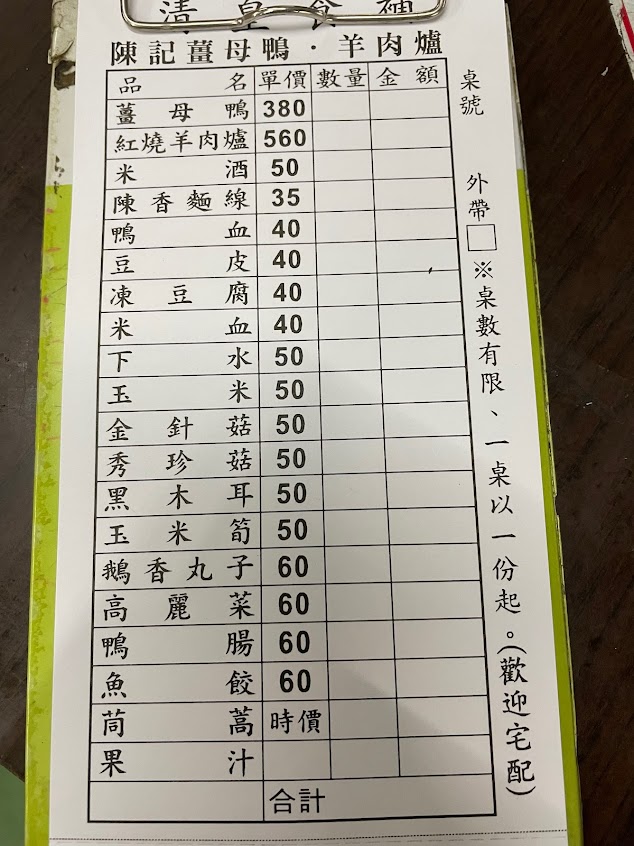 清皇食補
陳記薑母鴨·羊肉爐
品名 單價 數量 金額
薑母鴨 380
紅燒羊肉爐 560
米酒 50
陳香麵線 35
鴨血 40
豆皮 40
凍豆腐 40
米血 40
下水 50
玉米 50
金針菇 50
秀珍菇 50
黑木耳 50
玉米筍 50
鵝香丸子 60
高麗菜 60
鴨腸 60
魚餃 60
茼蒿 時價
果汁
合計
桌號
外帶□
※桌數有限、一桌以一份起。(歡迎宅配)